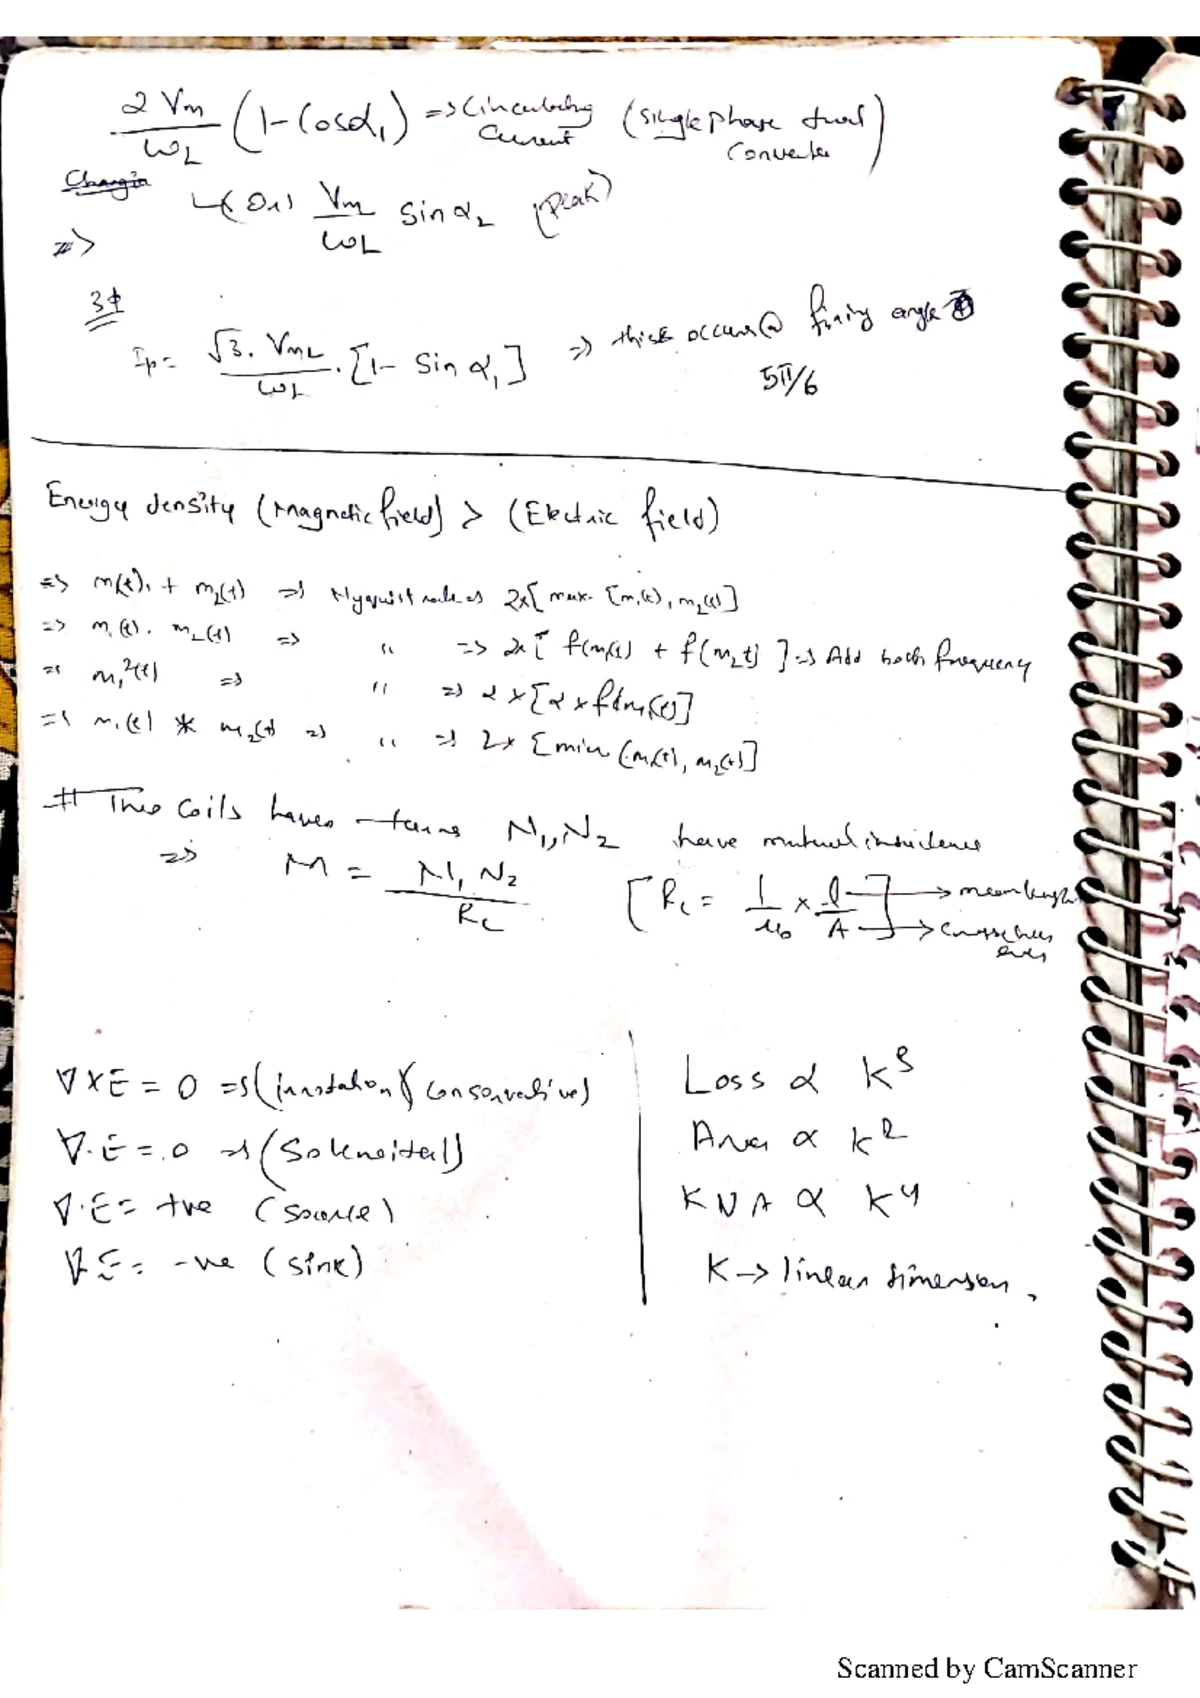 2 Vm / ωL (1 - Cosα1) => Circulating Current (Single phase dual Converter)
↳ (or) Vm / ωL Sin α2 (Peak)
=>
3ϕ
Ip = √3 . VmL / ωL . [1 - Sin α1] => occurs @ firing angle
5π/6
Energy density (Magnetic field) > (Electric field)
=> m(t)1 + m2(t) => Nyquist rate 2x[ max. [m1(t), m2(t)]
=> m1(t) . m2(t) => " => 2x [ f(m1(t) + f(m2t) ] => Add both frequency
=> m1²(t) => " => 2 x [2 x f(m1(t)]
=> m1(t) * m2(t) => " => 2x [min (m1(t), m2(t)]
# Two coils having turns N1, N2 have mutual inductance
=> M = N1, N2 / Rc [Rc = 1/μ0 x l/A] l → mean length
A →
∇ X E = 0 => (irrotational / conservative)
∇. E = 0 => (Solenoidal)
∇.E = +ve (source)
∇.E = -ve (sink)
Loss α k³
Area α k²
KVA α k⁴
K → linear dimension,
Scanned by CamScanner